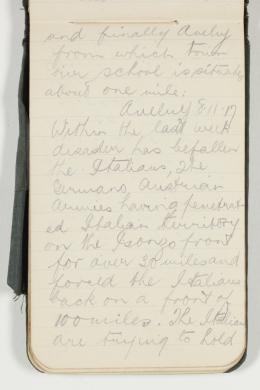 and finally Aveluy
from which town
our school is situate
about one mile:
Aveluy 8-11-17
Within the last week
disaster has befallen
the Italians, The
Germans, Austrian
Armies having penetrat-
ed Italian territory
on the Isonzo front
for over 30 miles and
forced the Italians
back on a front of
100 miles. The Italians
are trying to hold